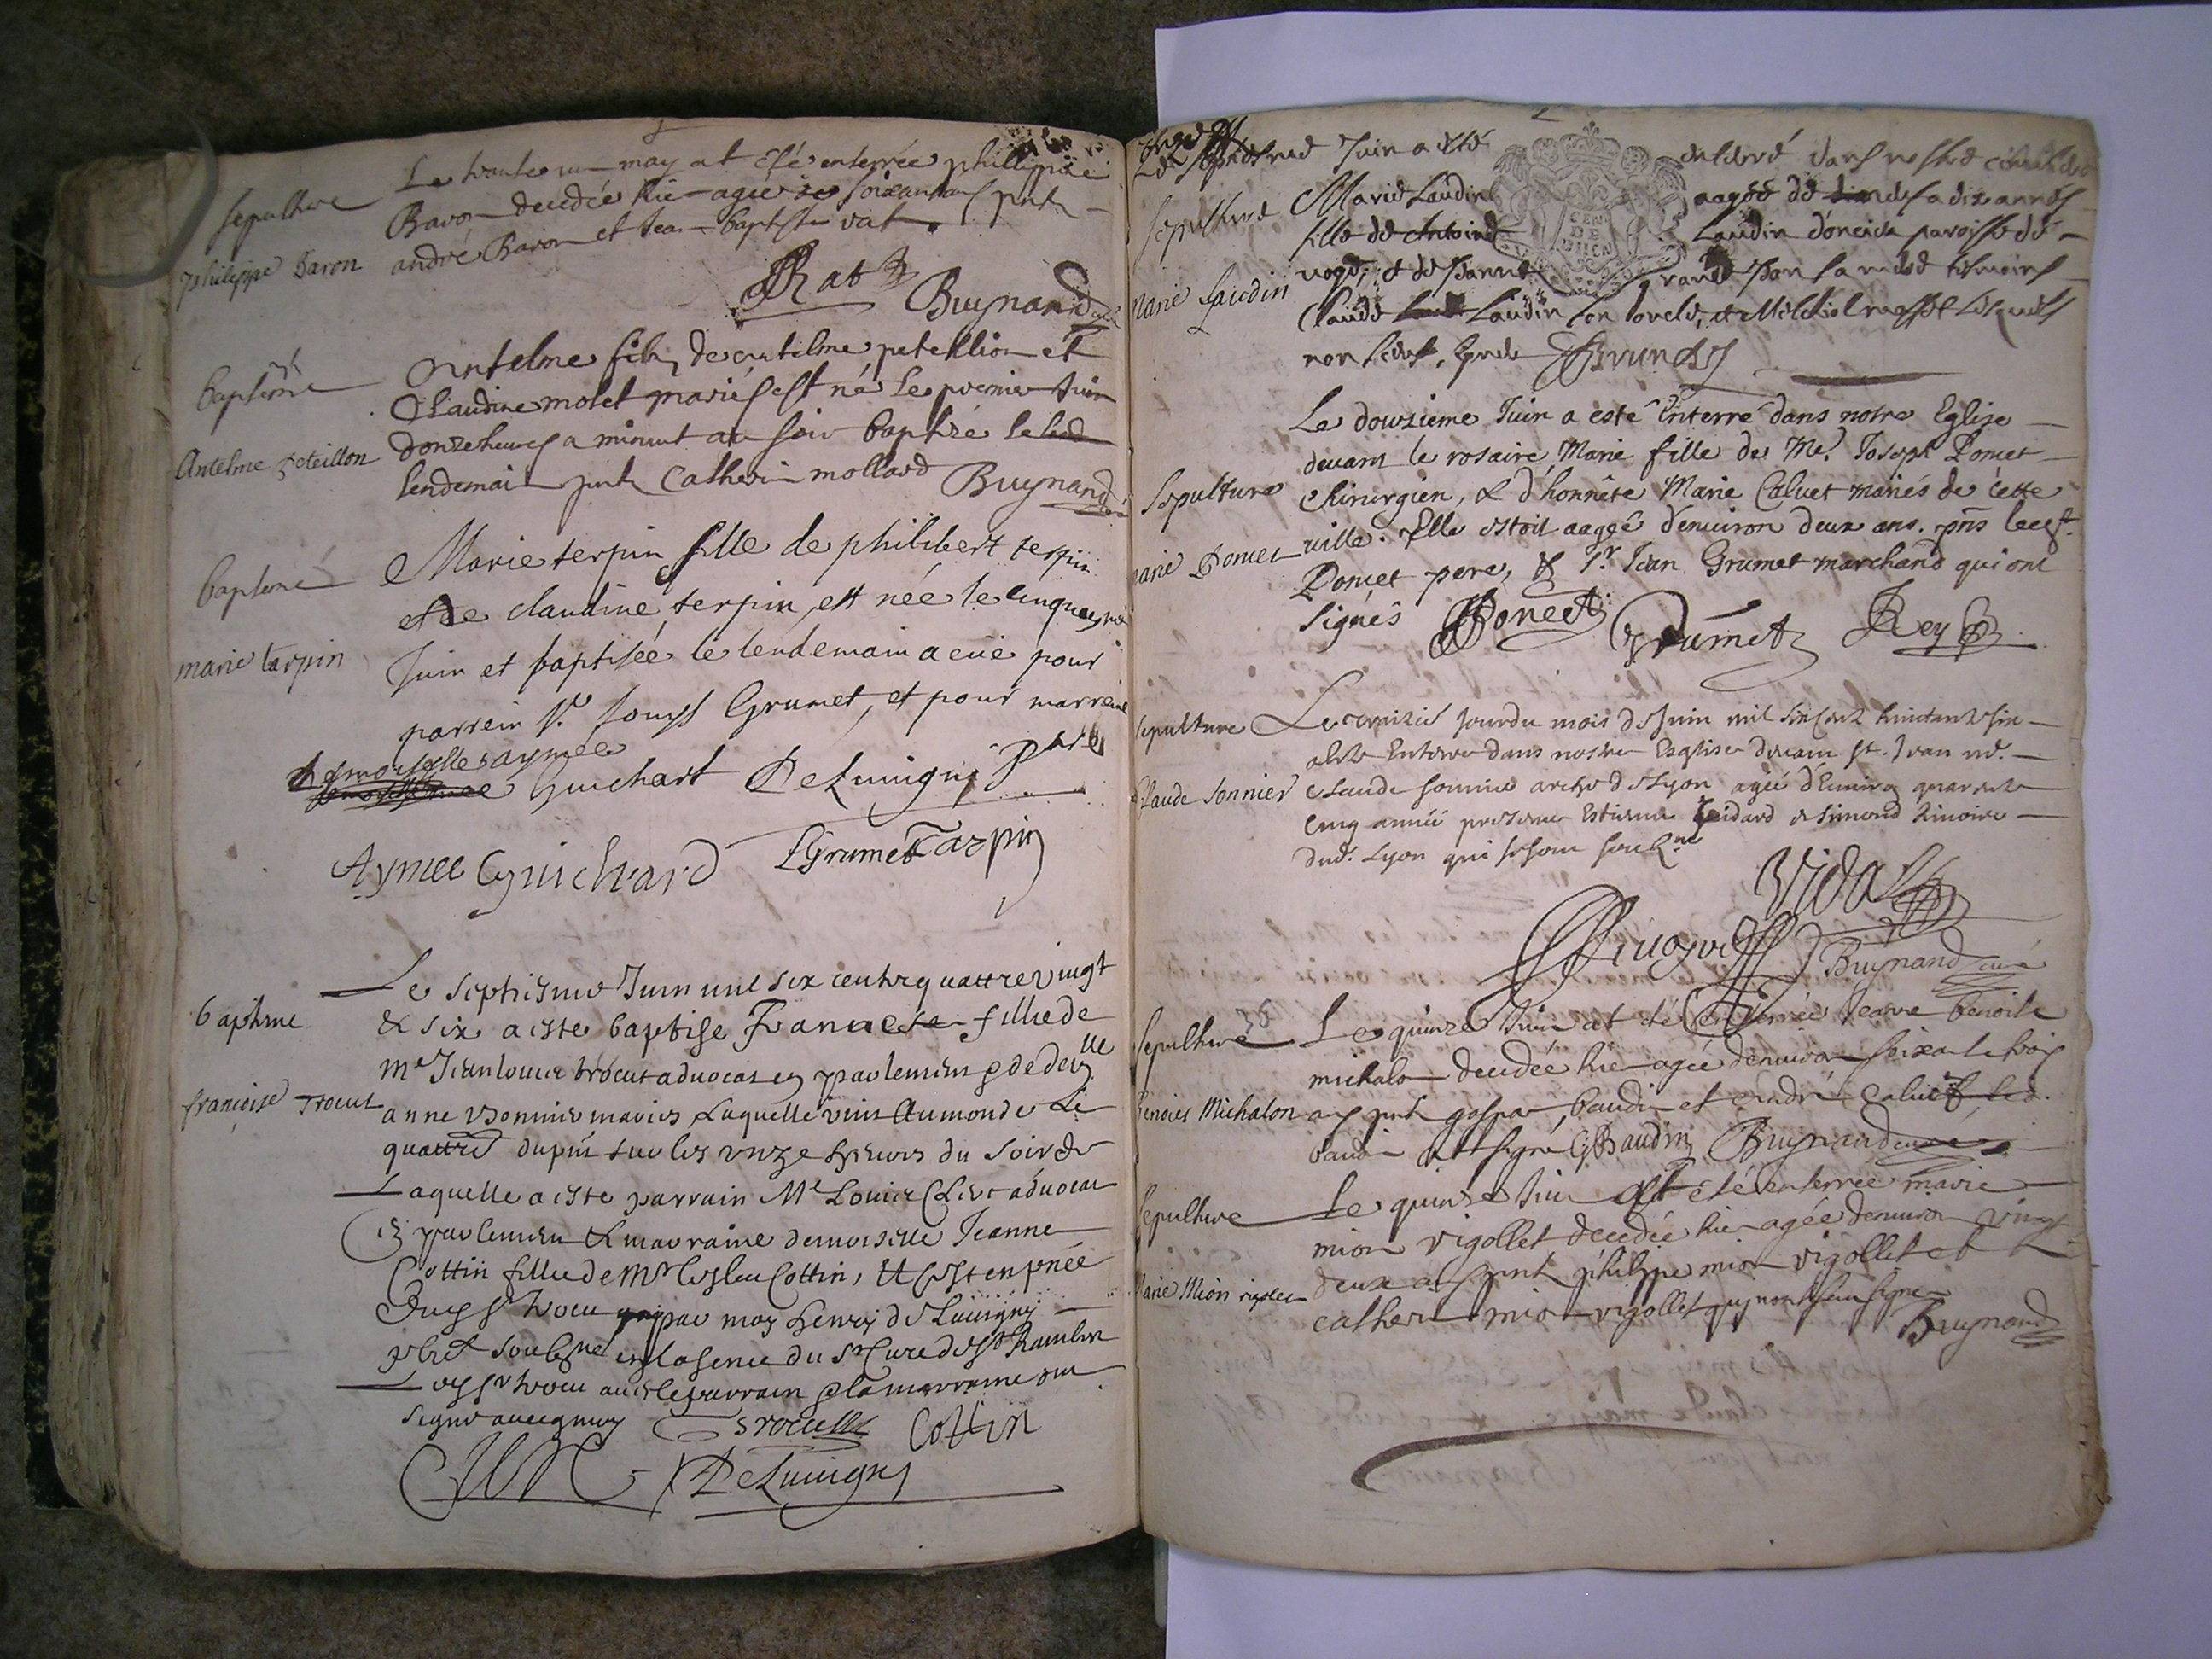 sepulture
philippe Baron
Le trente un may at été enterrée philippie
Baron decedée hier agée de soixante ans pnts
andré Baron et Jean baptiste vat
Rat
Buynand
baptême
Antelme peteillon
Antelme fils de antelme peteillion et
Claudine molet mariés est né le premier Juin
donze heures a minuit au soir baptizé le
lendemain pnts Catherin mollard Buynand
baptemé
marie tarpin
Marie terpin fille de philibert terpin
et de claudine terpin, est née le cinquiesme
Juin et baptisée le lendemain a eue pour
parrein Sr. Louys Grumet, et pour marreine
demoiselle aymée
Guichart DeLuuigni
Aymee Guichard LGrumet Tarpin
baptême
françoise Trocut
Le septiesme Juin mil six cents quattre vingt
& six a esté baptisé Francoise fille de
Me Jean louis trocut aduocat en parlement & de delle
anne Bonnier mariés Laquelle vint Aumonde Le
quattre dupnt sur les unze heures du soir de
Laquelle a esté parrain Me Louis Clerc aduocat
en parlement & marraine demoiselle Jeanne
Cottin fille de Mr Cottin, et c'est en pnée
Dudt Sr trocu par moy henry de Luuigny
pbre soubsné en lasence du Sr Cure de St Rambert
Ledt Sr trocu auec le parrain & la marraine ont
signé auecq moy Trocu Cottin
DeLuuigny
Le septiesme Juin a été enterré dans nostre cimetiere
sepulture
Marie Laudin
Marie Laudin aagée de dix années
fille de Antoine Laudin d'oncieu paroisse de
et de Jeanne sa mere tesmoins
Claude Laudin son oncle, et Melchiol lesquels
non signé, Brunet
Sepulture
marie Poncet
Le douzieme Juin a esté Enterré dans notre Eglise
deuant le rosaire Marie fille de Me. Joseph Poncet
chirurgien, & d'honnête Marie Caluet mariés de cette
ville. Elle estoit aagée d'enuiron deux ans. pns led.
Poncet pere, & Sr. Jean Grumet marchand qui ont
signés Poncet Grumet Rey
sepulture
Claude Sonnier
Le traizie jour du mois de Juin mil six cent huictante six
a esté Enterré dans nostre Esglise deuant St. Jean
claude sonnier de Lyon agée d'Enuiron quarente
cinq année presens Estienne Guidard & Simond
dud. Lyon qui se sont soubsné
Vidal
Buynand curé
sepulture
benoite Michalon
Le quinze Juin at été enterrée benoite
michalon decedée hier agée denuiron soixante trois
ans pnts gaspar baudin et andré Caluet, led.
baudin at signé GBaudin Buynand curé
sepulture
marie Mion vigollet
Le quinze Juin at été enterrée marie
mion vigollet decedée hier agée denuiron vingt
deux ans pnts philippe mion vigollet et
catherin mion vigollet
Buynand